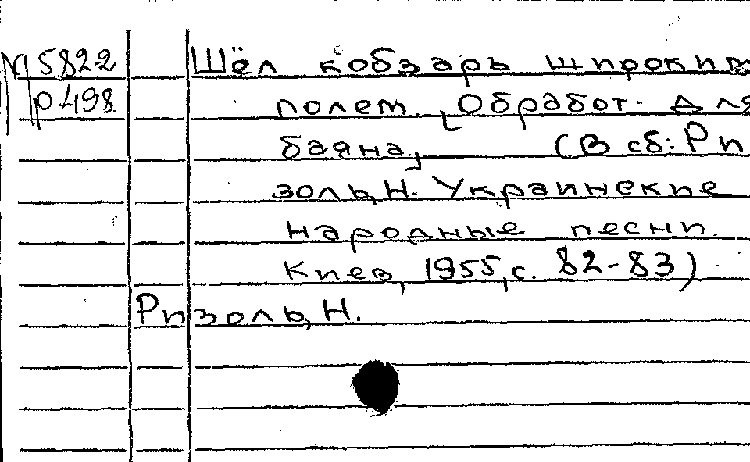 М 5822 Шёл кобзарь широким
Р498 полем. [Обработ. для
баяна] (В сб.: Ри
золь, Н. Украинские
народные песни.
Киев, 1955, с. 82-83)
Ризоль, Н.